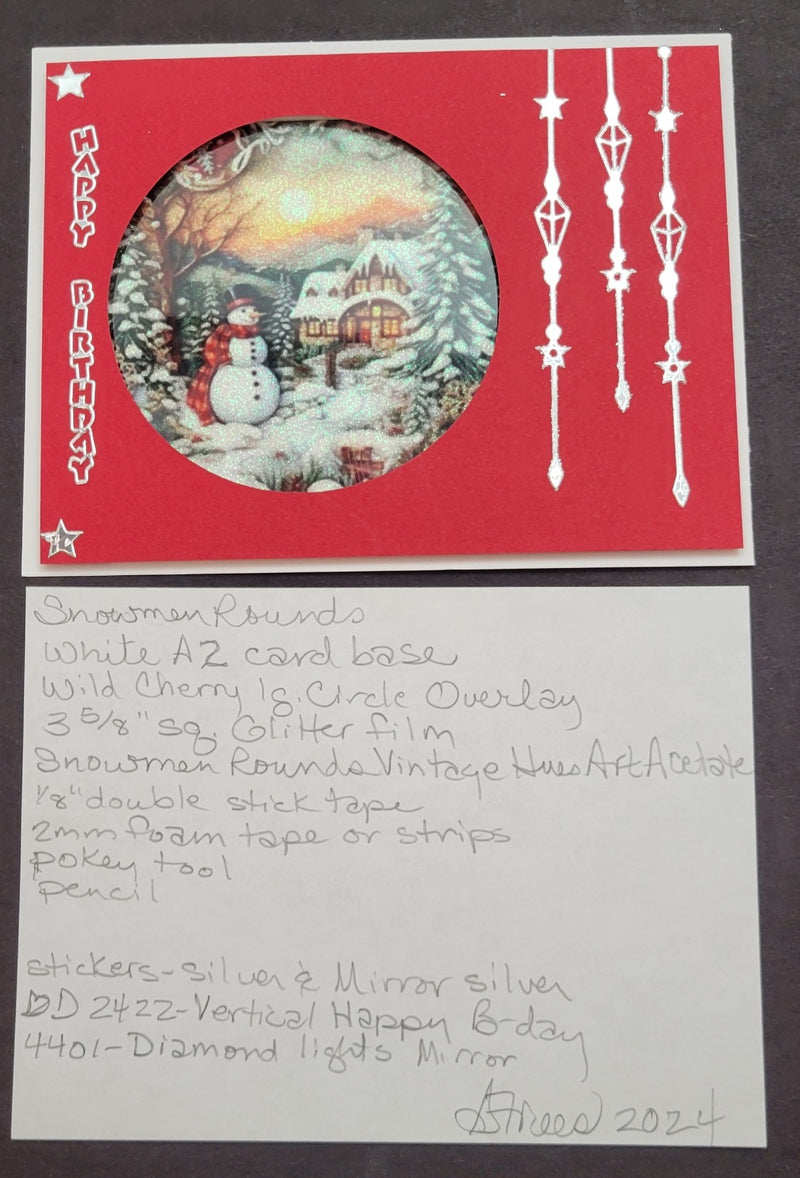 HAPPY BIRTHDAY
Snowmen Rounds
White A2 card base
Wild Cherry lg. Circle Overlay
3 5/8" sq. Glitter film
Snowmen Rounds Vintage Hues Art Acetate
1/8" double stick tape
2mm foam tape or strips
pokey tool
pencil
stickers-silver & Mirror silver
DD 2422-Vertical Happy B-day
4401-Diamond lights Mirror
2024